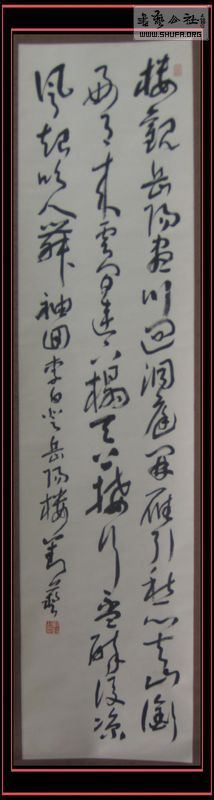 书艺公社
WWW.SHUFA.ORG
楼觀岳陽盡川迥洞庭開雁引愁心去山銜
好月來雲間連下榻天上接行杯醉後涼
風起吹人舞袖回李白登岳陽楼